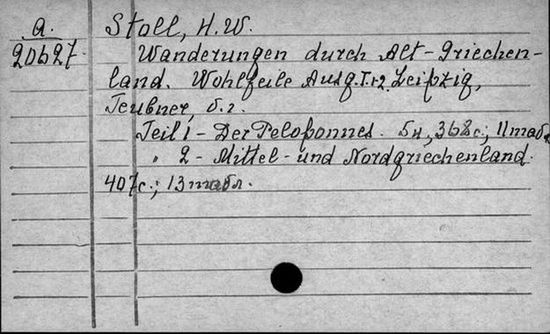 A.
20627
Stoll, H.W.
Wanderungen durch Alt-Griechen-
land. Wohlfeile Ausg. T.1-2. Leipzig,
Teubner, s.a.
Teil 1 - Der Peloponnes. 368c.; 11 табл.
" 2 - Mittel- und Nordgriechenland.
407c.; 13 табл.